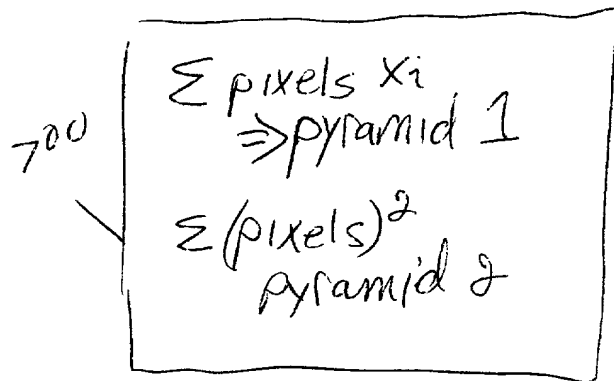 Σ pixels xi
⇒pyramid 1
700
Σ(pixels)²
pyramid 2